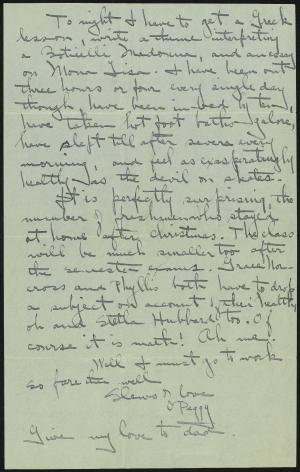 To night I have to get a Greek
lesson, write a theme interpreting
a Boticelli Madonna, and an essay
on Mona Lisa. I have been out
three hours or four every single day
though, have been in bed by ten,
have taken hot foot baths galore,
have slept till after seven every
morning, and feel as exasperatingly
healthy as the devil on skates.
It is perfectly surprising, the
number of freshmen who stayed
at home after Christmas. The class
will be much smaller too after
the semester exams. Grace Nor-
cross and Phyllis both have to drop
a subject on account of their healths,
oh and Stella Hubbard too. Of
course it is math! Ah me!
Well I must go to work
so fare thee well
Slews of love
Peggy
Give my love to dad.